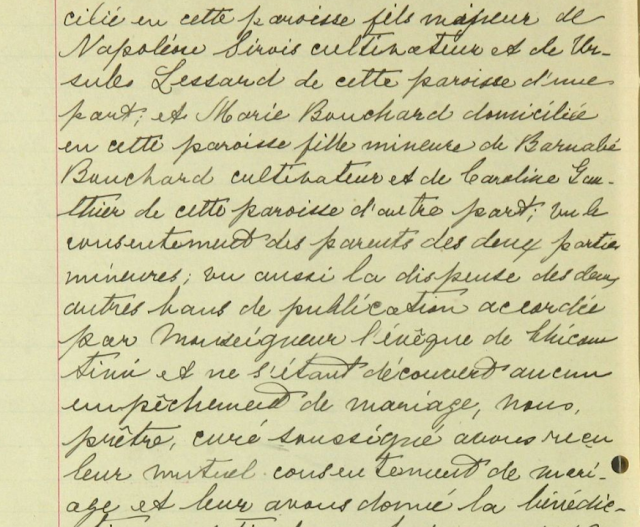 cilié en cette paroisse fils majeur de
Napoléon Sirois cultivateur et de Ur-
sule Lessard de cette paroisse d'une
part; et Marie Bouchard domiciliée
en cette paroisse fille mineure de Barnabé
Bouchard cultivateur et de Caroline Gau-
thier de cette paroisse d'autre part; vu le
consentement des parents des deux parties
mineures; vu aussi la dispense des deux
autres bans de publication accordée
par Monseigneur l'évêque de Chicou
timi et ne s'étant découvert aucun
empêchement de mariage, nous,
prêtre, curé soussigné avons reçu
leur mutuel consentement de mari-
age et leur avons donné la bénédic-